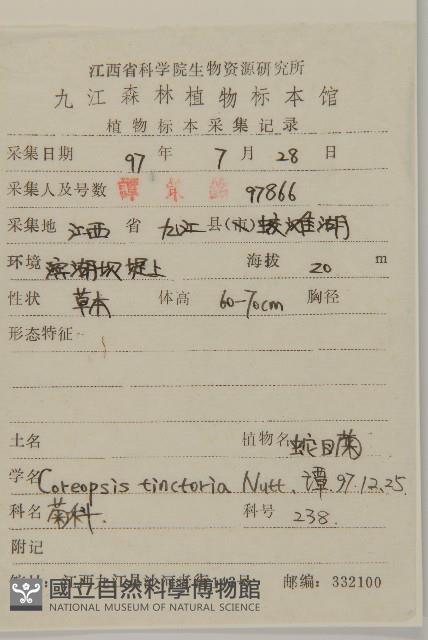 江西省科学院生物资源研究所
九江森林植物标本馆
植物标本采集记录
采集日期 97 年 7 月 28 日
采集人及号数 譚策銘 97866
采集地 江西 省 九江 县(市) 滩湖
环境 滨湖坝堤上 海拔 20 m
性状 草本 体高 60-70cm 胸径
形态特征
土名 植物名 蛇目菊
学名 Coreopsis tinctoria Nutt. 谭.97.12.25
科名 菊科. 科号 238.
附记
江西九江县沙河老街 号 邮编：332100
國立自然科學博物館
NATIONAL MUSEUM OF NATURAL SCIENCE